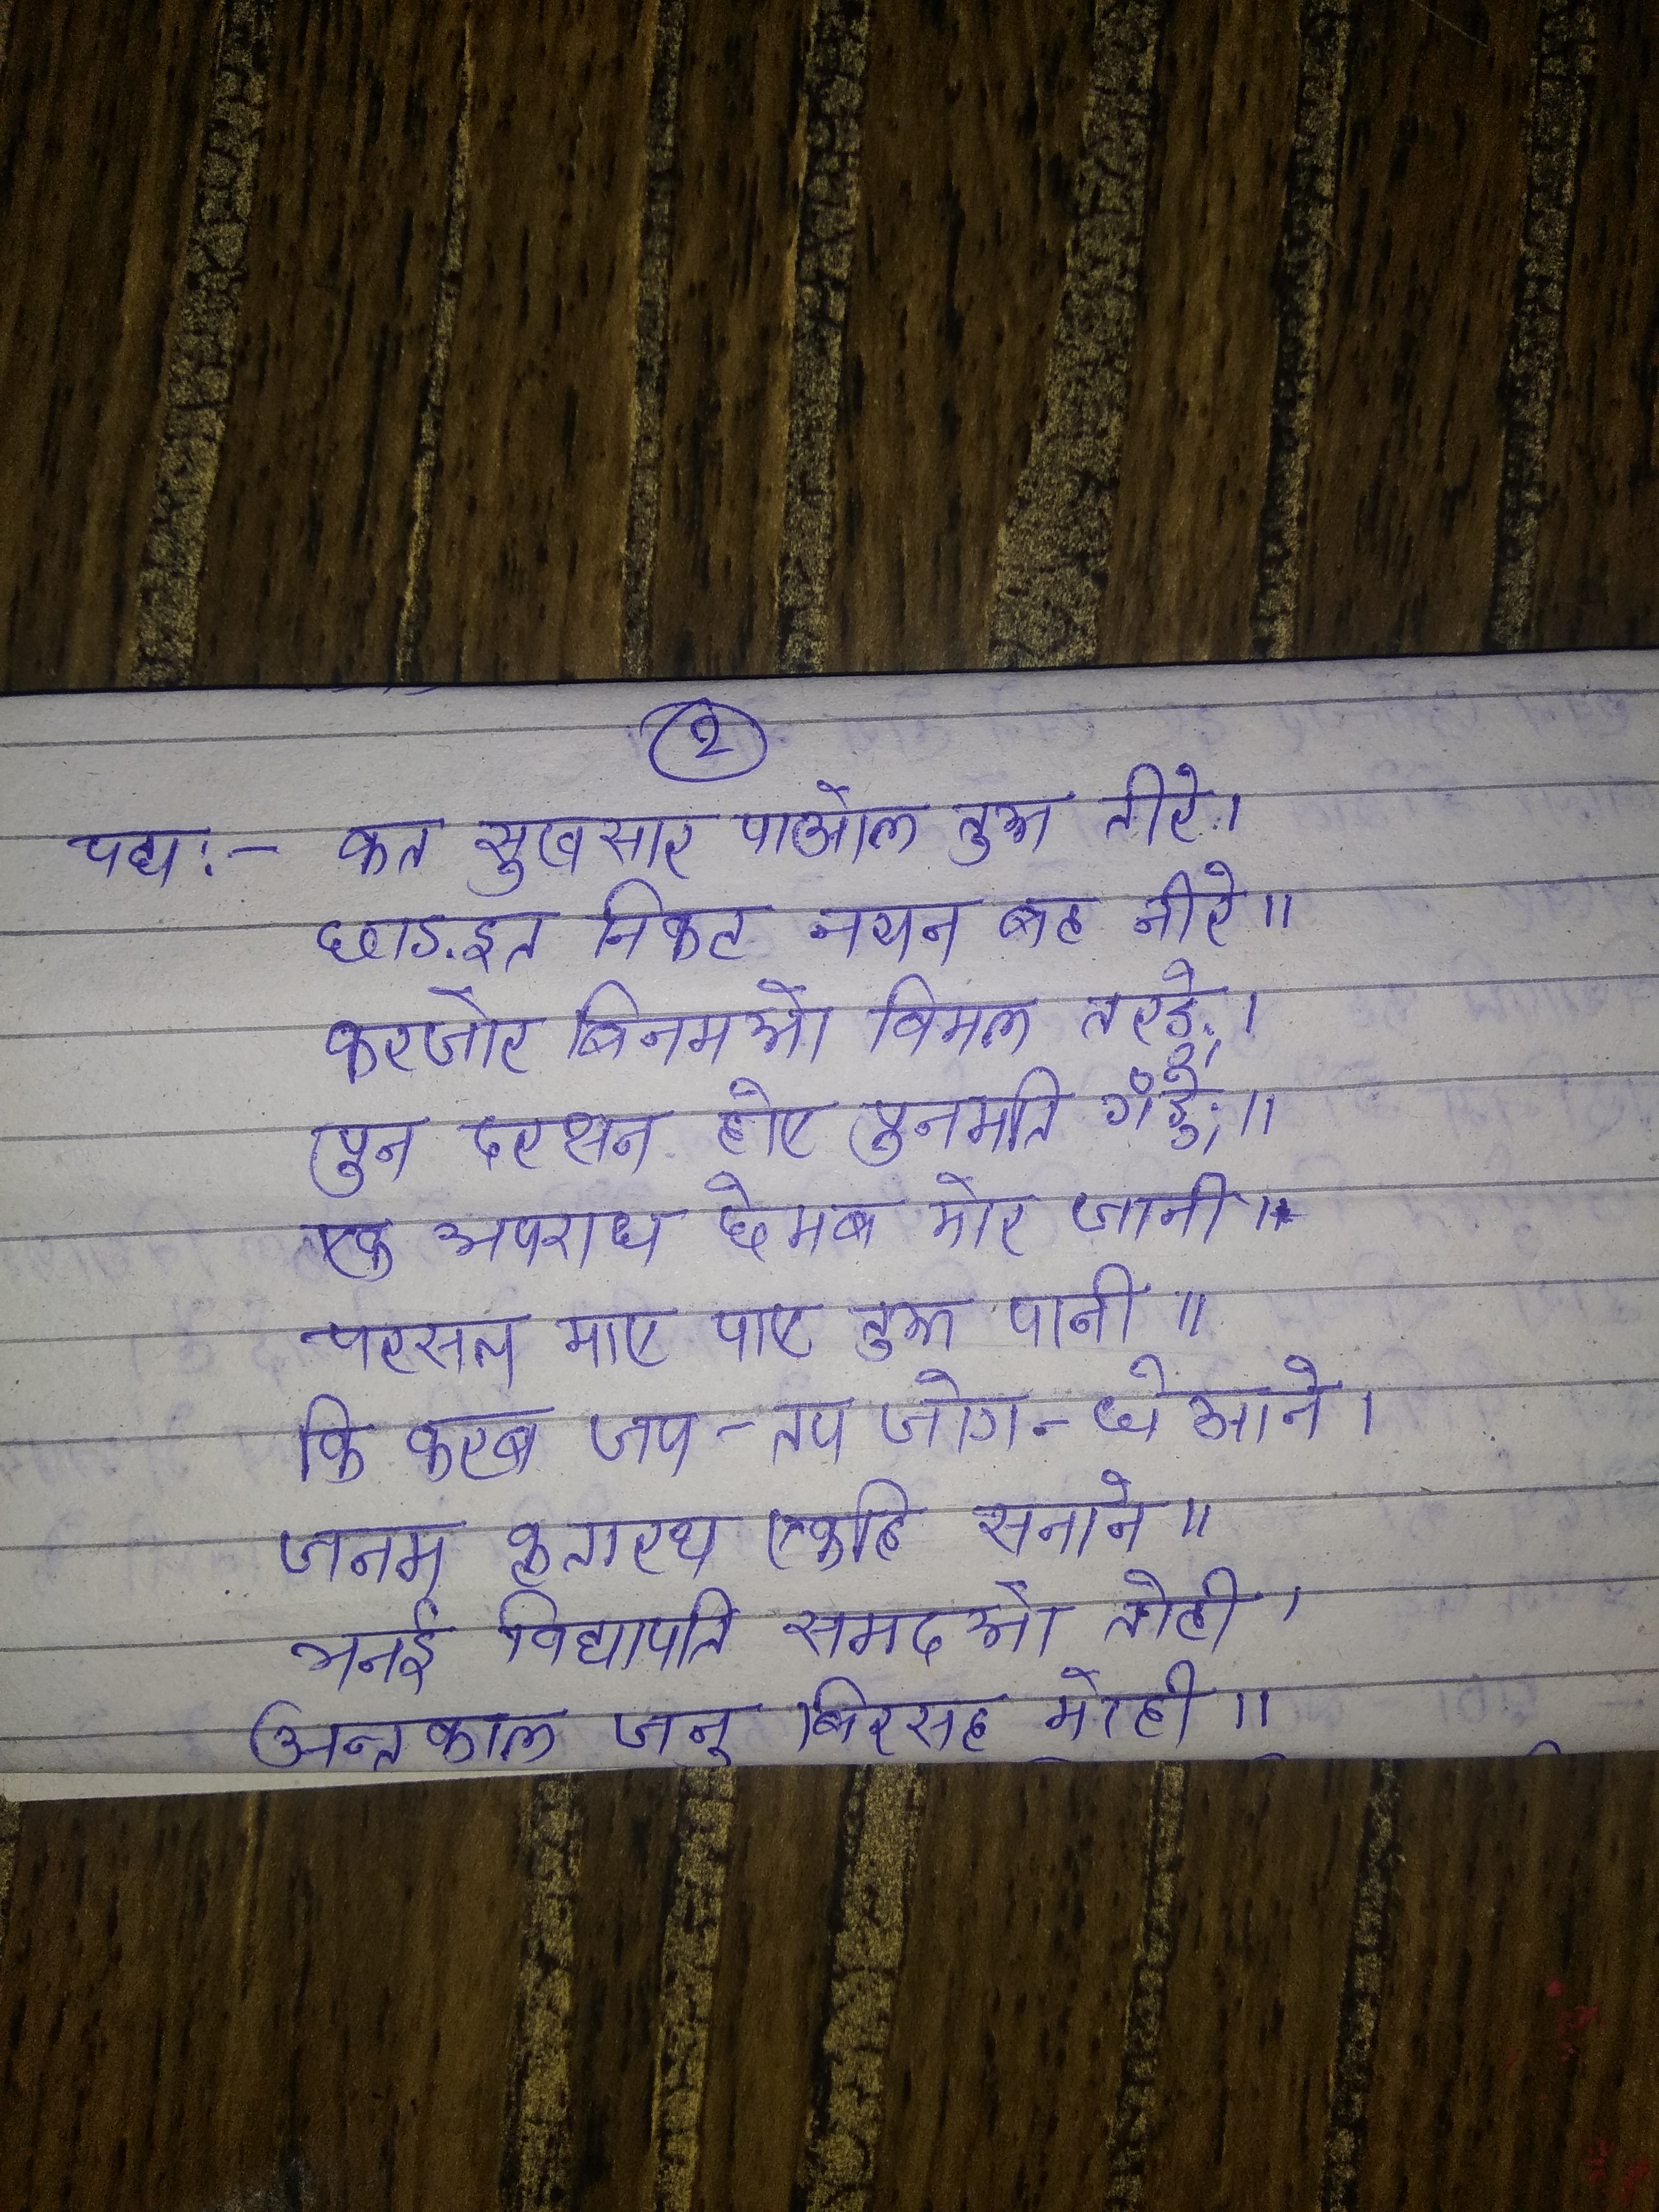 २
पद्य :- कत सुखसार पाओल तुअ तीरे।
छाड.इत निकट नयन बह नीरे॥
करजोर बिनमओ विमल तरङ्गे।
पुन दरसन होए पुनमति गँङ्गे॥
एक अपराध छेमब मोर जानी॥
परसल माए पाए तुअ पानी॥
कि करब जप-तप जोग-धेआने।
जनम कृतारथ एकहि सनाने॥
भनई विद्यापति समदओ तोही।
अन्तकाल जनु बिरसह मोही॥